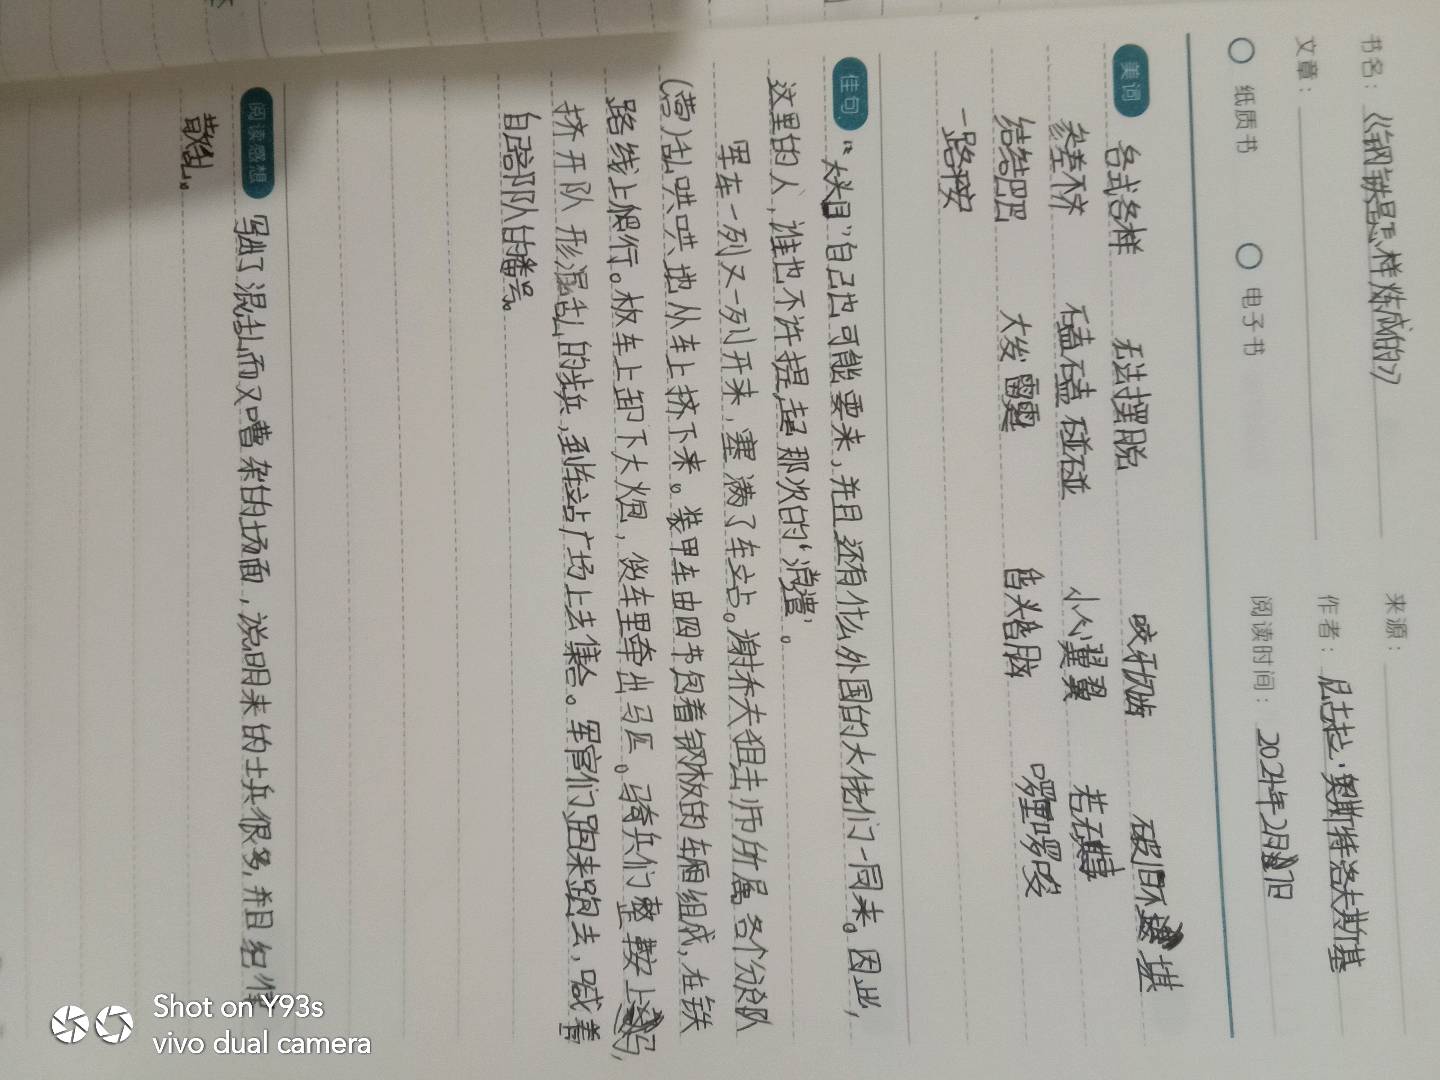 书名：《钢铁是怎样炼成的》 来源：
文章： 作者：尼古拉·奥斯特洛夫斯基
纸质书 电子书 阅读时间：2024年2月
美词 各式各样 无法摆脱 咬牙切齿 破旧不堪
参差不齐 磕磕碰碰 小心翼翼 若无其事
结结巴巴 大发雷霆 呆头呆脑 啰里啰唆
一路平安
佳句 “大头目”自己也可能要来，并且还有什么外国的大佬们一同来。因此，
这里的人，谁也不许提起那次的‘消遣’。
军车一列又一列开来，塞满了车站。谢乔夫狙击师所属各个分队
(营)乱哄哄地从车上挤下来。装甲车由四节包着钢板的车厢组成，在铁
路线上爬行。板车上卸下大炮，货车里牵出马匹。骑兵们整鞍上马，
挤开队形混乱的步兵，到车站广场上去集合。军官们跑来跑去，喊着
自己部队的番号。
阅读感想 写出了混乱而又嘈杂的场面，说明来的士兵很多，并且纪律
散乱。
Shot on Y93s
vivo dual camera